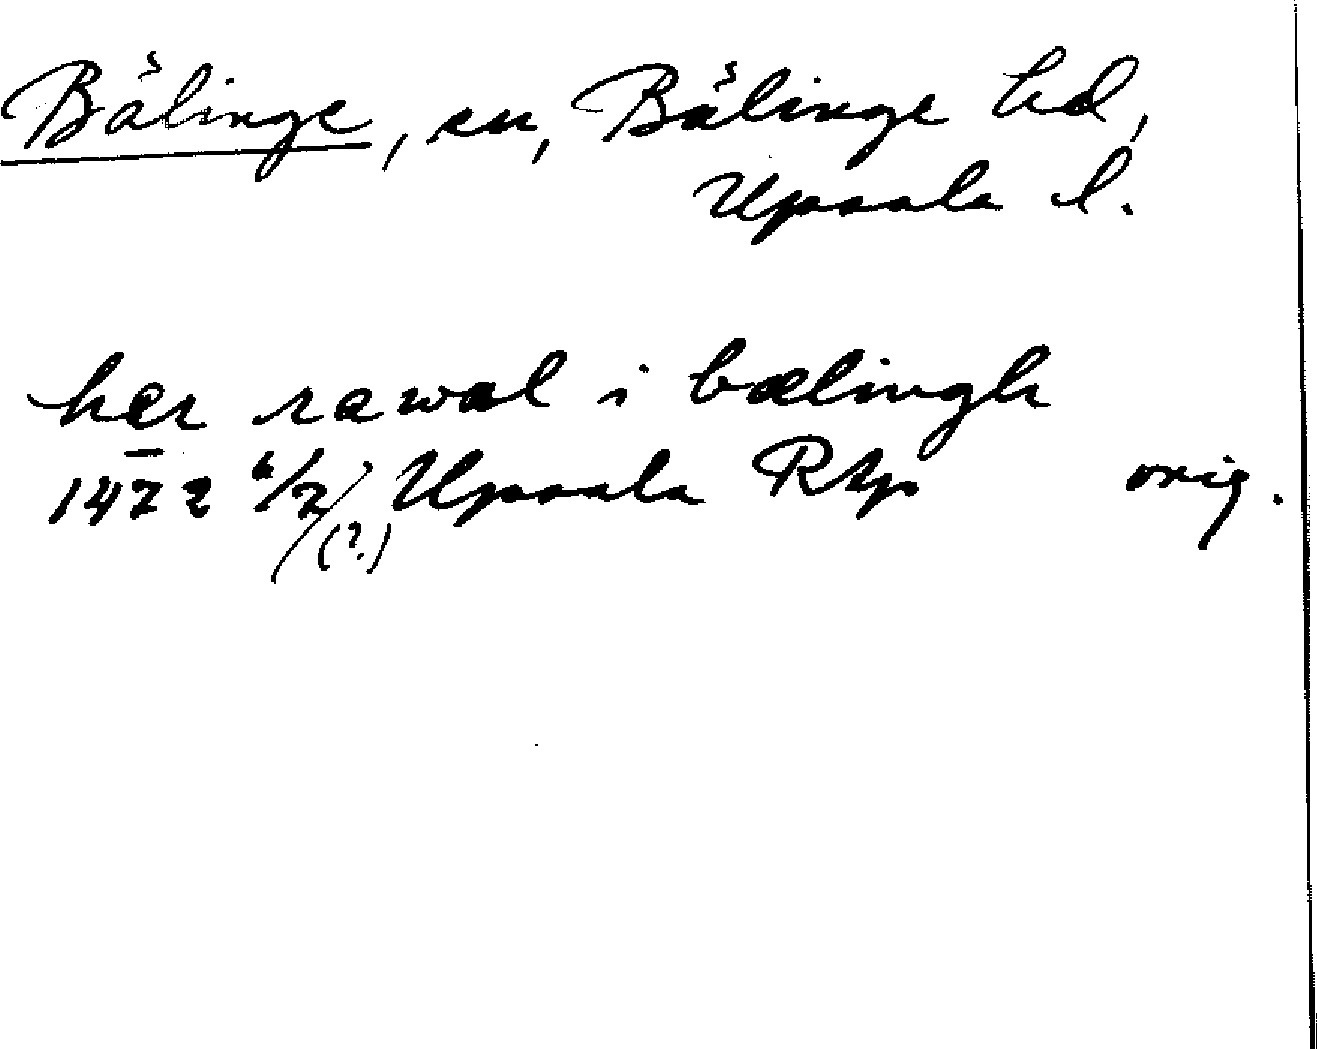 Bälinge, sn, Bälinge hd,
Uppsala l.
her rawal i bælingh
1422 6/2 (?) Uppsala RAp orig.